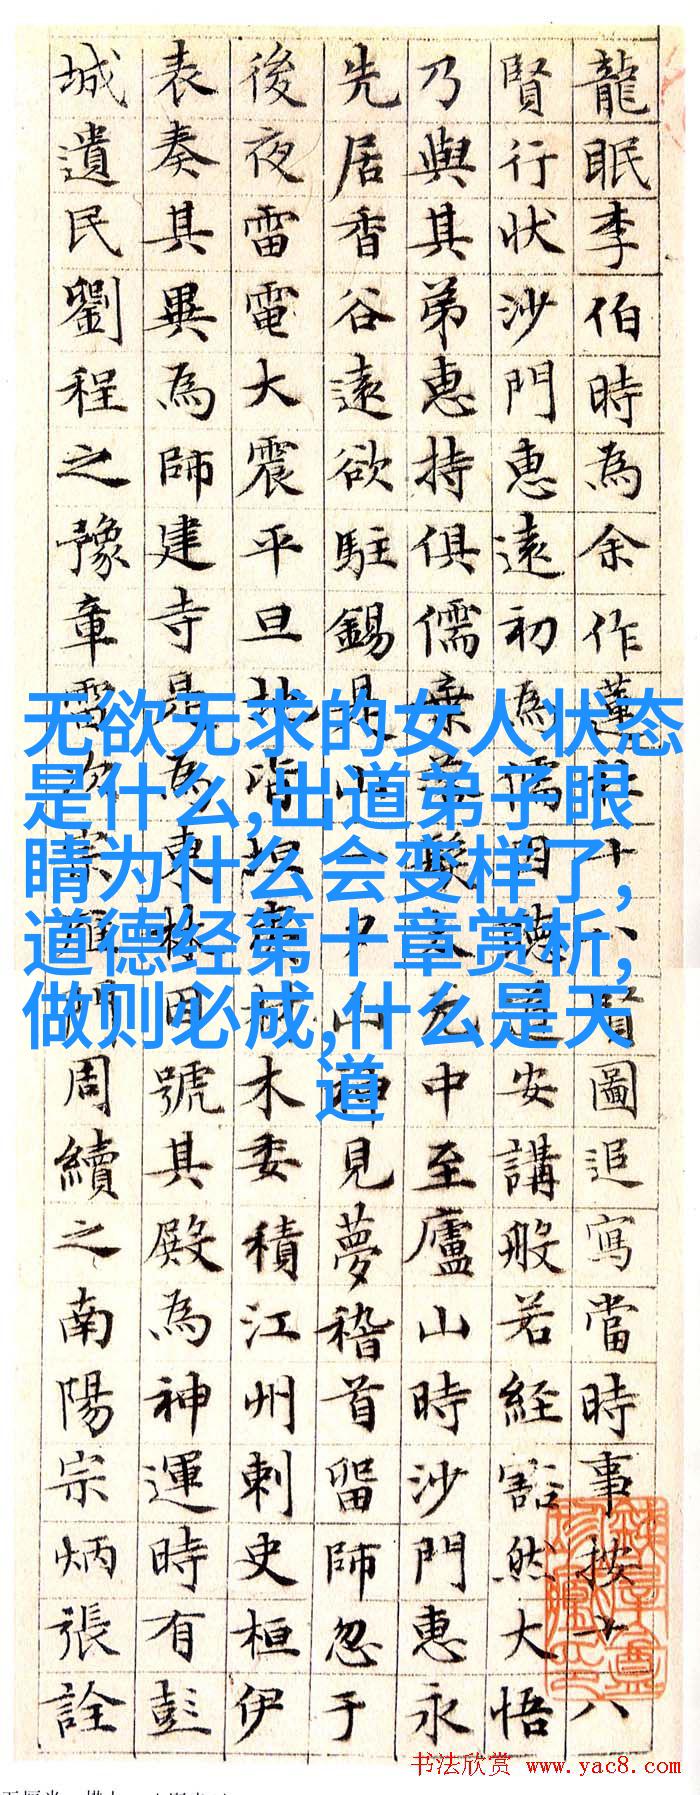 龍眠李伯時為余作蓮社十八賢圖追寫當時事按十八
賢行狀沙門惠遠初為儒因聽道安講般若經豁然大悟
乃與其弟惠持俱儒棄髮太元中至廬山時沙門惠永
先居香谷遠欲駐錫是山一夕山神見夢稽首留師忽于
後夜雷電大震平旦地皆坦夷材木委積江州刺史桓伊
表奏其異為師建寺是為東林因號其殿為神運時有彭
城遺民劉程之豫章雷次宗雁門周續之南陽宗炳張詮
无欲无求的女人状态
是什么,出道弟子眼
睛为什么会变样了,
道德经第十章赏析,
做则必成,什么是天
道
书法欣赏 www.yac8.com